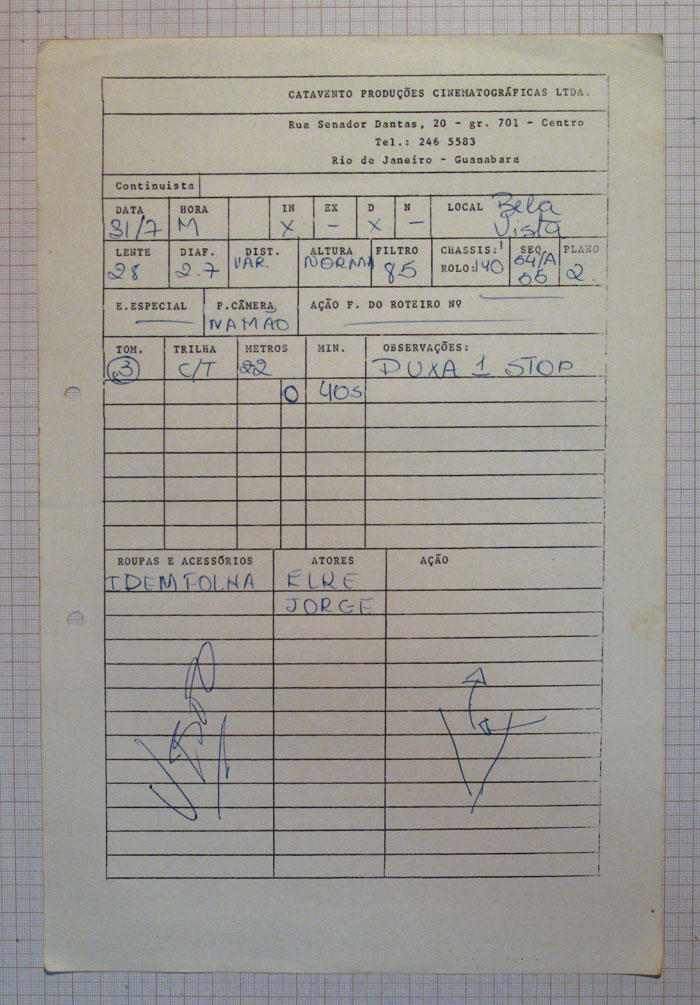 CATAVENTO PRODUÇÕES CINEMATOGRÁFICAS LTDA.
Rua Senador Dantas, 20 - gr. 701 - Centro
Tel.: 246 5583
Rio de Janeiro - Guanabara
Continuista
DATA HORA IN EX D N LOCAL Bela
31/7 M X - X - Vista
LENTE DIAF. DIST. ALTURA FILTRO CHASSIS: 1 SEQ. PLANO
28 2.7 VAR. NORMA 85 ROLO: 140 54/A 2.
55
E.ESPECIAL P.CÂMERA AÇÃO F. DO ROTEIRO Nº
NAMÃO
TOM. TRILHA METROS MIN. OBSERVAÇÕES:
3 C/T 22 PUXA 1 STOP
0 40s
ROUPAS E ACESSÓRIOS ATORES AÇÃO
IDEM FOLHA ELKE
JORGE